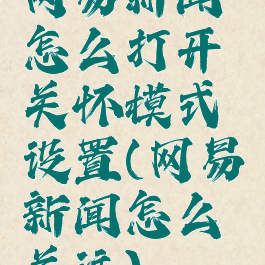 网易新闻
怎么打开
关怀模式
设置(网易
新闻怎么
关远)